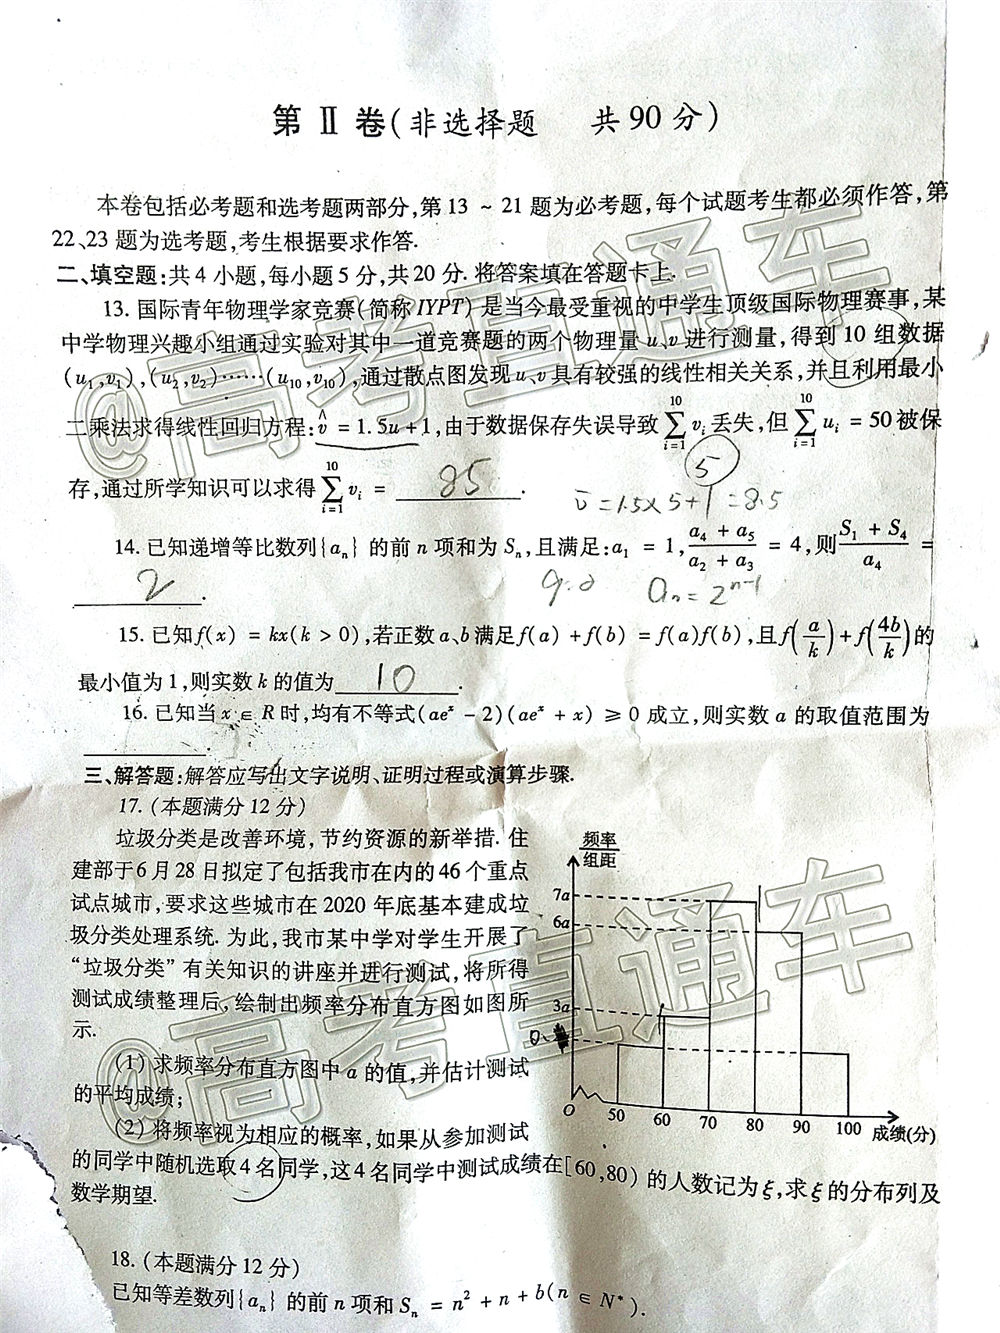 第 Ⅱ 卷(非选择题 共90分)
本卷包括必考题和选考题两部分,第13～21题为必考题,每个试题考生都必须作答,第
22、23题为选考题,考生根据要求作答.
二、填空题:共4小题,每小题5分,共20分.将答案填在答题卡上.
13.国际青年物理学家竞赛(简称IYPT)是当今最受重视的中学生顶级国际物理赛事,某
中学物理兴趣小组通过实验对其中一道竞赛题的两个物理量u、v进行测量,得到10组数据
(u₁,v₁),(u₂,v₂)……(u₁₀,v₁₀),通过散点图发现u、v具有较强的线性相关关系,并且利用最小
二乘法求得线性回归方程:v̂=1.5u+1,由于数据保存失误导致∑_{i=1}^{10} vᵢ丢失,但∑_{i=1}^{10} uᵢ=50被保
5
存,通过所学知识可以求得∑_{i=1}^{10} vᵢ= 85 .
v̄=1.5×5+1=8.5
14.已知递增等比数列{aₙ}的前n项和为Sₙ,且满足:a₁=1,(a₄+a₅)/(a₂+a₃)=4,则(S₁+S₄)/a₄=
2 .
aₙ=2ⁿ⁻¹
15.已知f(x)=kx(k>0),若正数a、b满足f(a)+f(b)=f(a)f(b),且f(a/k)+f(4b/k)的
最小值为1,则实数k的值为 10 .
16.已知当x∈R时,均有不等式(aeˣ-2)(aeˣ+x)≥0成立,则实数a的取值范围为
.
三、解答题:解答应写出文字说明、证明过程或演算步骤.
17.(本题满分12分)
垃圾分类是改善环境,节约资源的新举措.住
建部于6月28日拟定了包括我市在内的46个重点
试点城市,要求这些城市在2020年底基本建成垃
圾分类处理系统.为此,我市某中学对学生开展了
“垃圾分类”有关知识的讲座并进行测试,将所得
测试成绩整理后,绘制出频率分布直方图如图所
示.
(1)求频率分布直方图中a的值,并估计测试
的平均成绩;
(2)将频率视为相应的概率,如果从参加测试
的同学中随机选取4名同学,这4名同学中测试成绩在[60,80)的人数记为ξ,求ξ的分布列及
数学期望.
频率
组距
7a
6a
3a
O 50 60 70 80 90 100 成绩(分)
18.(本题满分12分)
已知等差数列{aₙ}的前n项和Sₙ=n²+n+b(n∈N*).
@高考直通车
@高考直通车